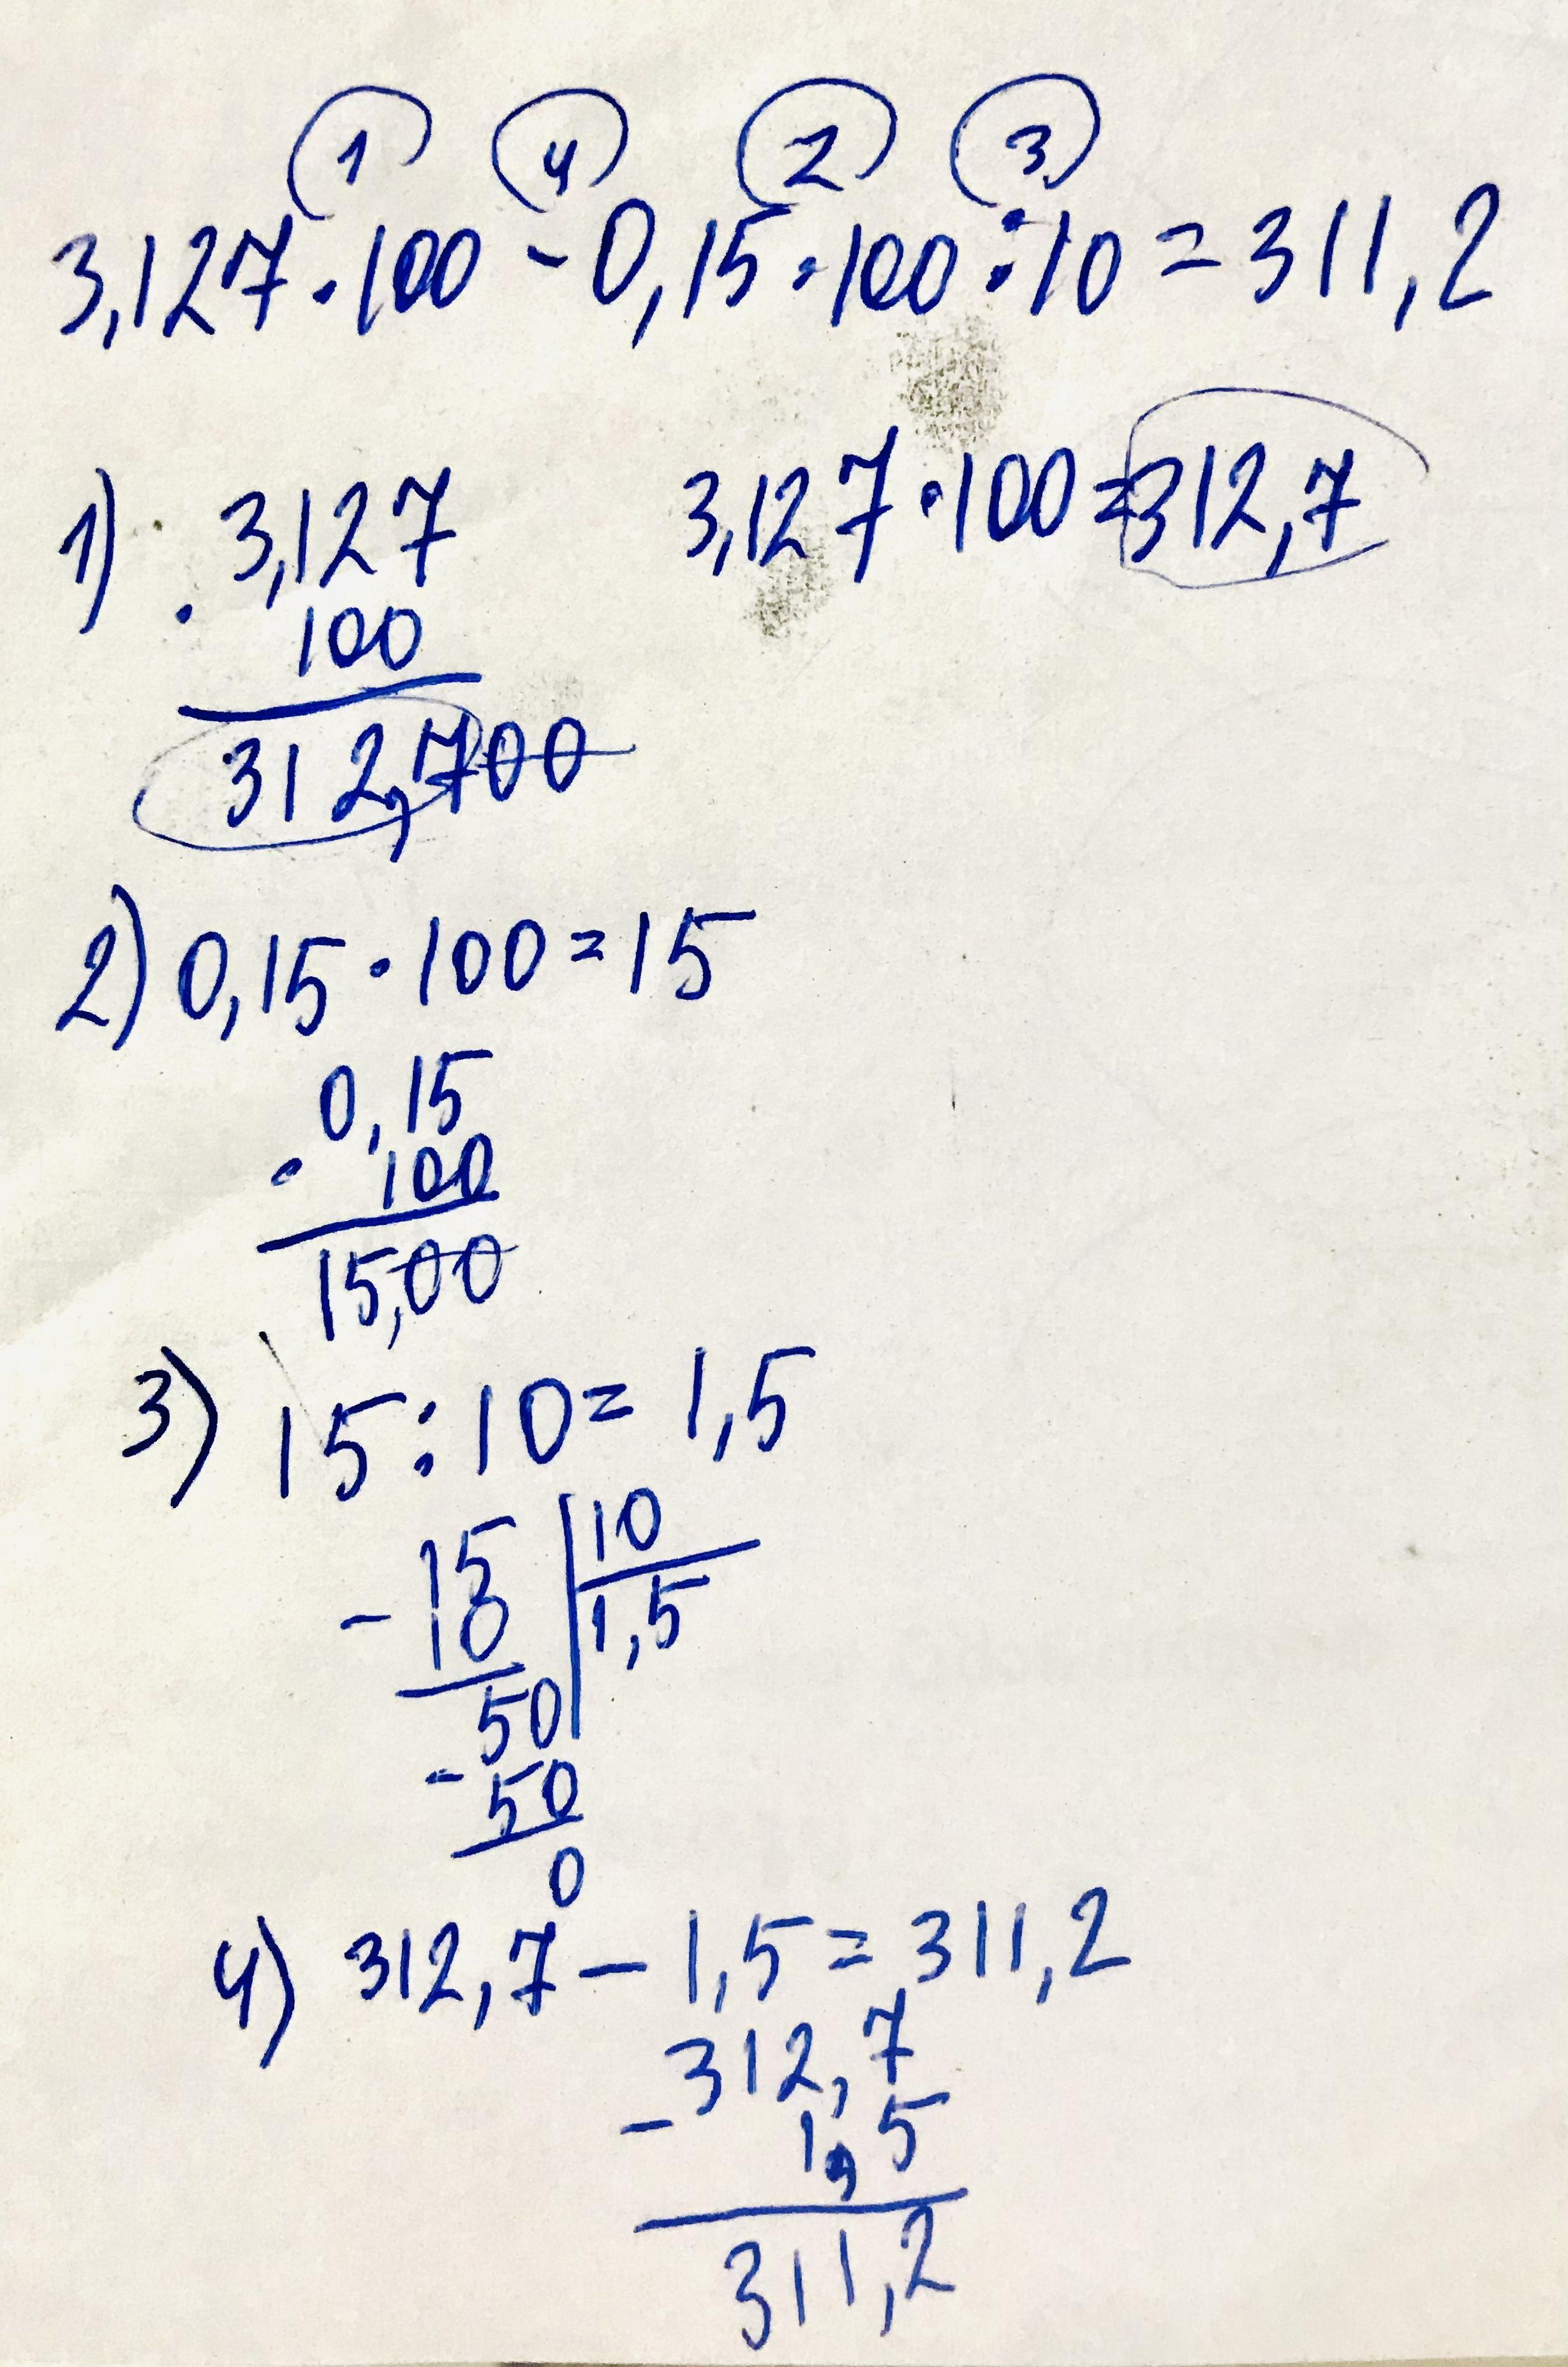 1 4 2 3
3,127·100-0,15·100:10=311,2
1) 3,127 3,127·100=312,7
· 100
312,700
2) 0,15·100=15
0,15
· 100
15,00
3) 15:10=1,5
15 10
- 10 1,5
50
- 50
0
4) 312,7-1,5=311,2
312,7
- 1,5
311,2